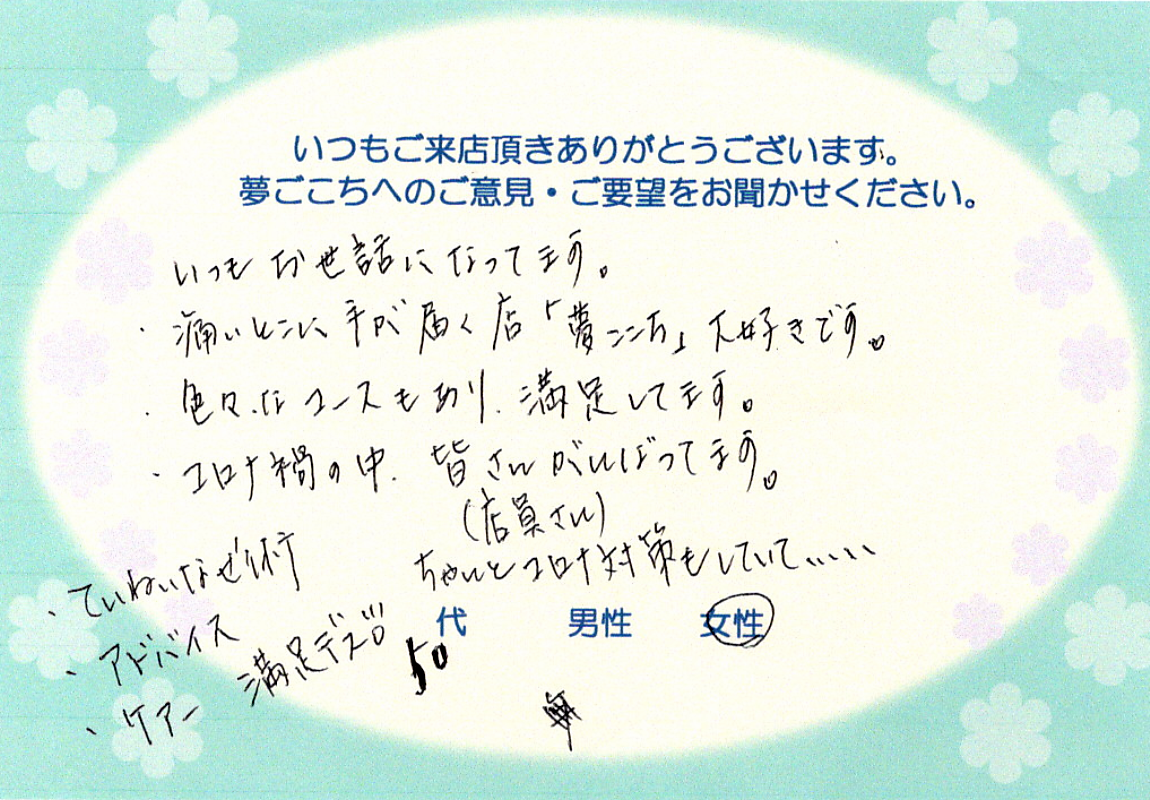 いつもご来店頂きありがとうございます。
夢ごこちへのご意見・ご要望をお聞かせください。
いつもお世話になってます。
・痛いとこに、手が届く店「夢ここち」大好きです。
・色々なコースもあり、満足してます。
・コロナ禍の中、皆さんがんばってます。
(店員さん)
ちゃんとコロナ対策もしていて、、、、、
・ていねいなせ術
・アドバイス
・ケアー
満足デス!!!
50代 男性 女性